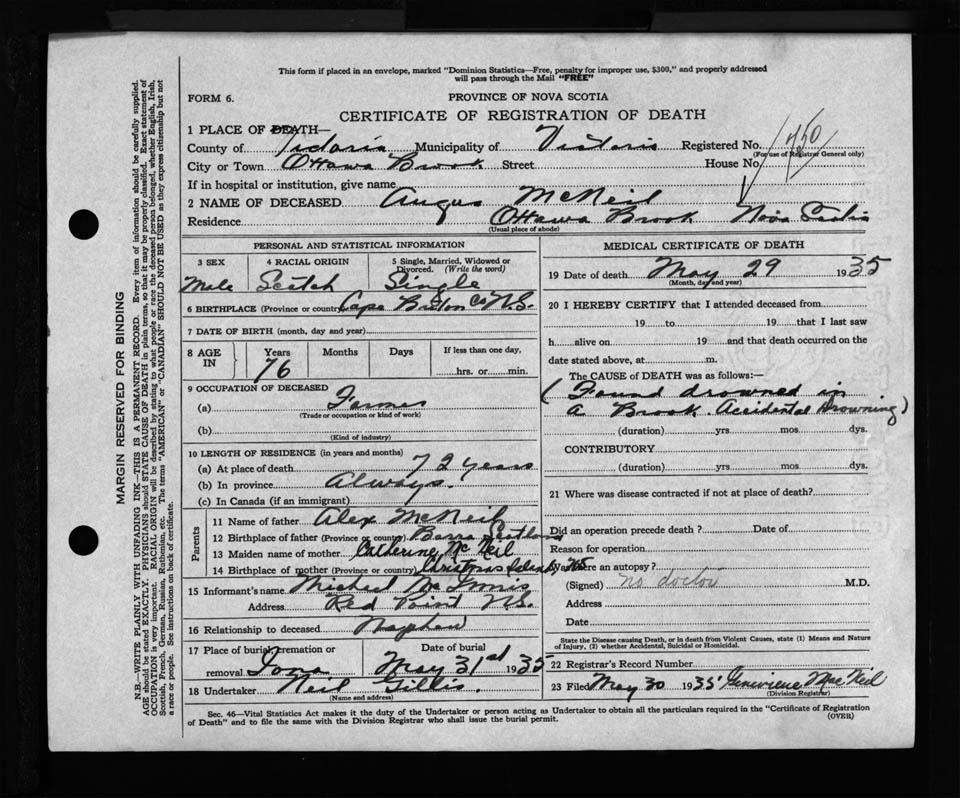 This form if placed in an envelope, marked "Dominion Statistics—Free, penalty for improper use, $300," and properly addressed
will pass through the Mail "FREE"
FORM 6.
PROVINCE OF NOVA SCOTIA
CERTIFICATE OF REGISTRATION OF DEATH
1 PLACE OF DEATH—
County of Victoria Municipality of Victoria Registered No.
(For use of Registrar General only)
750
City or Town Ottawa Brook Street House No
If in hospital or institution, give name
2 NAME OF DECEASED Angus McNeil
Residence Ottawa Brook Nova Scotia
(Usual place of abode)
PERSONAL AND STATISTICAL INFORMATION
3 SEX 4 RACIAL ORIGIN 5 Single, Married, Widowed or Divorced. (Write the word)
Male Scotch Single
6 BIRTHPLACE (Province or country) Cape Breton Co N.S.
7 DATE OF BIRTH (month, day and year)
8 AGE IN Years Months Days If less than one day,
76 hrs. or min.
9 OCCUPATION OF DECEASED
(a) Farmer
(Trade or occupation or kind of work)
(b)
(Kind of industry)
10 LENGTH OF RESIDENCE (in years and months)
(a) At place of death 72 years
(b) In province Always.
(c) In Canada (if an immigrant)
Parents
11 Name of father Alex McNeil
12 Birthplace of father (Province or country) Barra Scotland
13 Maiden name of mother Catherine McNeil
14 Birthplace of mother (Province or country) Christmas Island NS
15 Informant's name Michael McInnis
Address Red Point N.S.
16 Relationship to deceased Nephew
17 Place of burial, cremation or removal Iona Date of burial May 31st 1935
18 Undertaker Neil Gillis.
(Name and address)
MEDICAL CERTIFICATE OF DEATH
19 Date of death May 29 1935
(Month, day and year)
20 I HEREBY CERTIFY that I attended deceased from
19 to 19 that I last saw
h alive on 19 and that death occurred on the
date stated above, at m.
The CAUSE of DEATH was as follows:—
(Found drowned in
a Brook. Accidental Drowning)
(duration) yrs mos dys.
CONTRIBUTORY
(duration) yrs. mos. dys.
21 Where was disease contracted if not at place of death?
Did an operation precede death? Date of
Reason for operation
Was there an autopsy?
(Signed) no doctor M.D.
Address
Date
State the Disease causing Death, or in death from Violent Causes, state (1) Means and Nature
of Injury, (2) whether Accidental, Suicidal or Homicidal.
22 Registrar's Record Number
23 Filed May 30 1935 Genevieve MacNeil
(Division Registrar)
Sec. 46—Vital Statistics Act makes it the duty of the Undertaker or person acting as Undertaker to obtain all the particulars required in the "Certificate of Registration
of Death" and to file the same with the Division Registrar who shall issue the burial permit.
(OVER)
MARGIN RESERVED FOR BINDING
N.B.—WRITE PLAINLY WITH UNFADING INK—THIS IS A PERMANENT RECORD. Every item of information should be carefully supplied.
AGE should be stated EXACTLY. PHYSICIANS should STATE CAUSE OF DEATH in plain terms, so that it may be properly classified. Exact statement of
OCCUPATION is very important. RACIAL ORIGIN will be described by stating to what people or race the deceased person belonged, whether English, Irish,
Scottish, French, German, Russian, Ruthenian, etc. The terms "AMERICAN" or "CANADIAN" SHOULD NOT BE USED as they express citizenship but not
a race or people. See instructions on back of certificate.